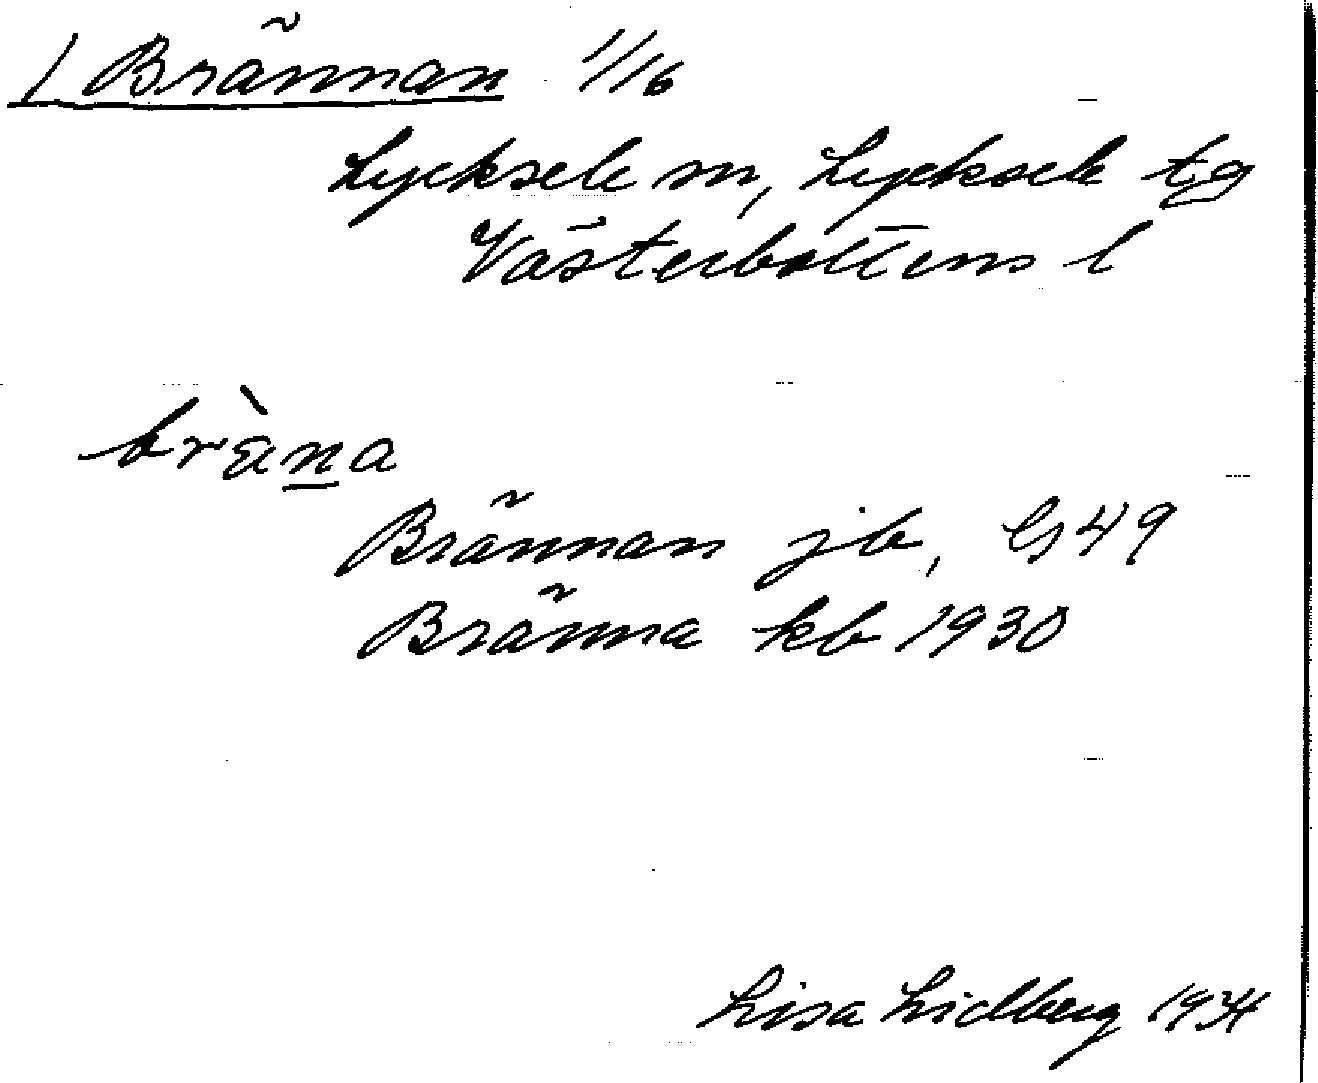 / Brännan 1/16
Lycksele sn, Lycksele tg
Västerbottens l
bràn̲a
Brännan jb, Gs 49
Bränna kb 1930
Lisa Lidberg 1934